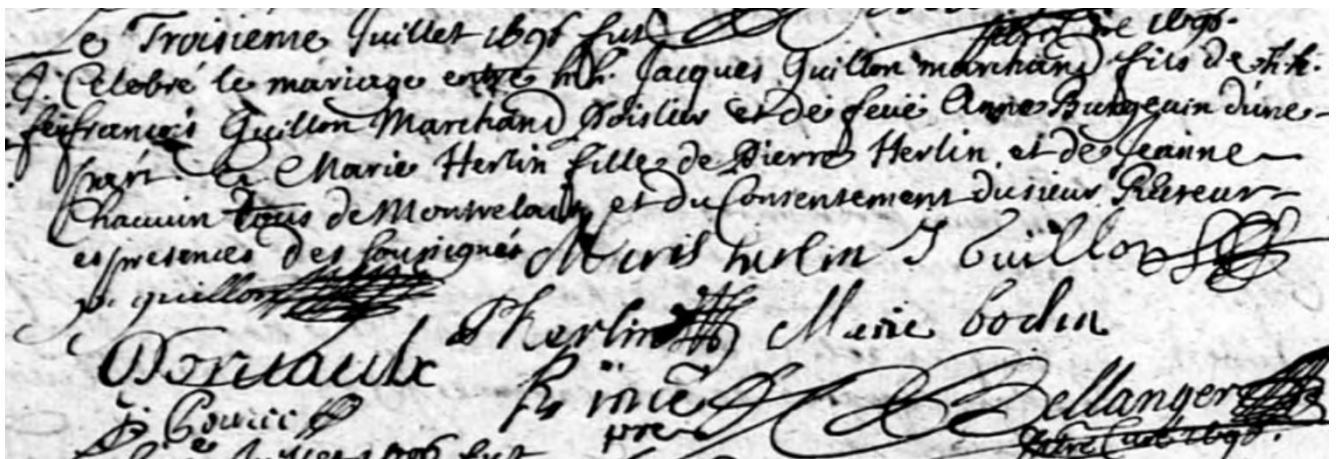 Le Troisieme Juillet 1696 fut
Celebré le mariage entre h.h. Jacques Guillon marchand fils de h.h.
feu francois Guillon Marchand et de feuë Anne Burgevin d'une
part. Et Marie Herlin fille de Pierre Herlin et de Jeanne
Chauvin tous de Montrelais et du Consentement du sieur
es presences des soussignés Marie herlin J Guillon
guillon
P herlin Marie bodin
Bellanger
1696.
Juillet 1696 fut